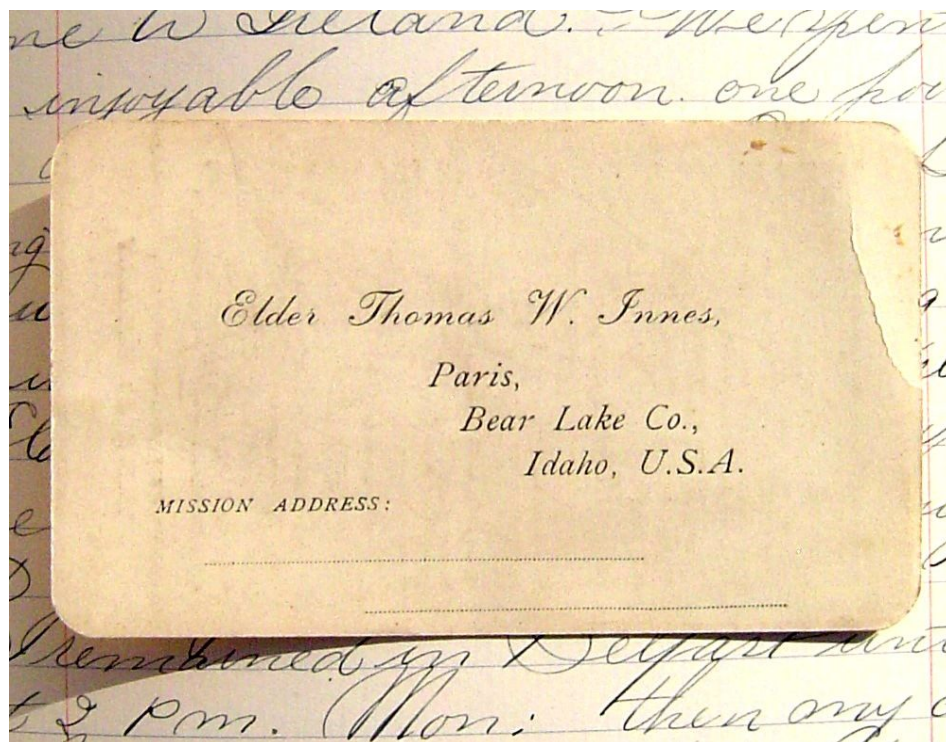 to Ireland. We spen
injoyable afternoon. one
Elder Thomas W. Innes,
Paris,
Bear Lake Co.,
Idaho, U.S.A.
MISSION ADDRESS:
remained in Belfast
2 Pm. Mon; then my